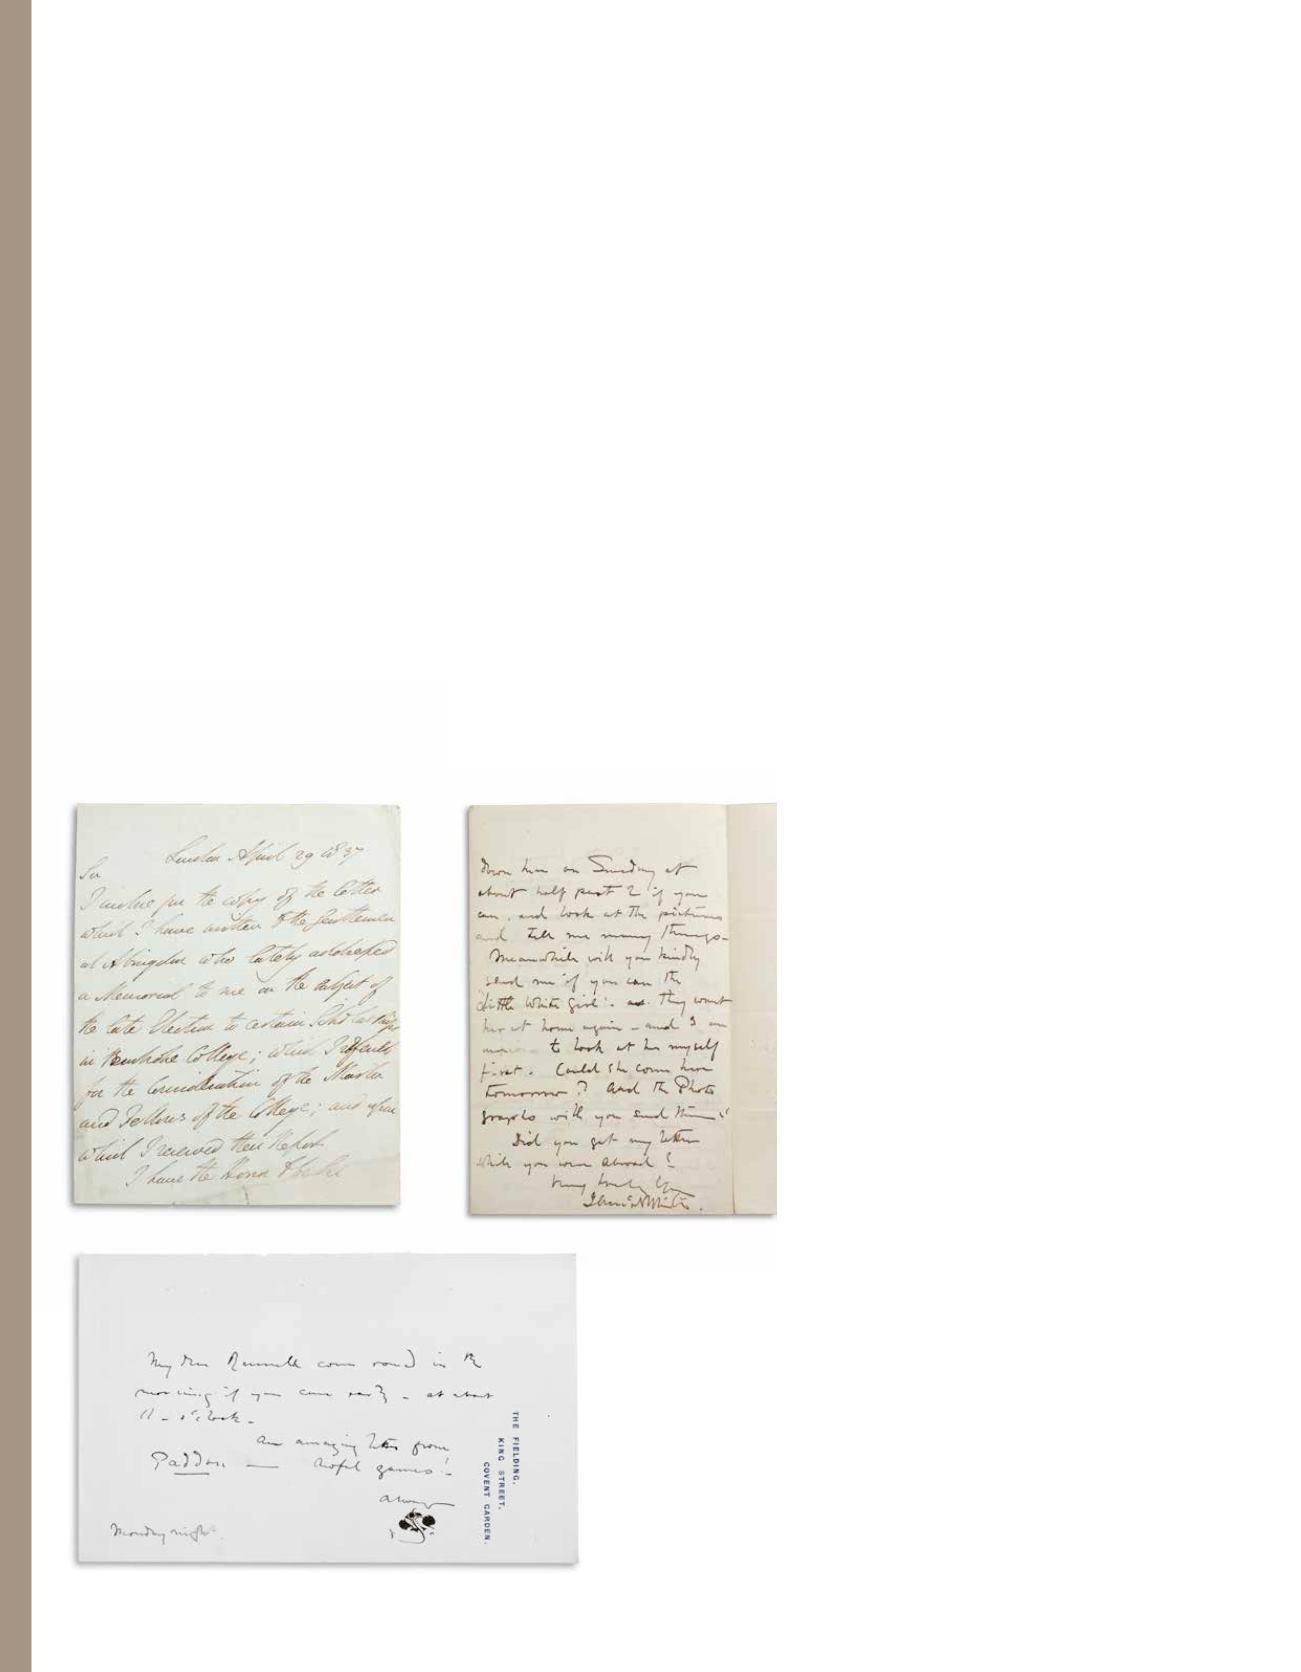 London April 29 1837
Sir
I enclose you the copy of the letter
which I have written to the Gentlemen
at Abingdon who lately addressed
a Memorial to me on the subject of
the late Election to certain Scholarships
in Pembroke College; which I referred
for the Consideration of the Master
and Fellows of the College; and upon
which I received their Report
I have the Honor to be Sir
down here on Sunday at
about half past 2 if you
can, and look at the pictures
and tell me many things—
Meanwhile will you kindly
send me if you can the
"little White Girl". as they want
her at home again - and I am
to look at her myself
first. Could she come here
tomorrow? And the Photo
graphs will you send them?
Did you get my letter
while you were abroad?
Very truly yours
My dear Rennell come round in the
morning if you can early - at about
11 - o'clock -
An amazing letter from
Paddon — awful games!-
always
Monday night.
THE FIELDING,
KING STREET,
COVENT GARDEN.